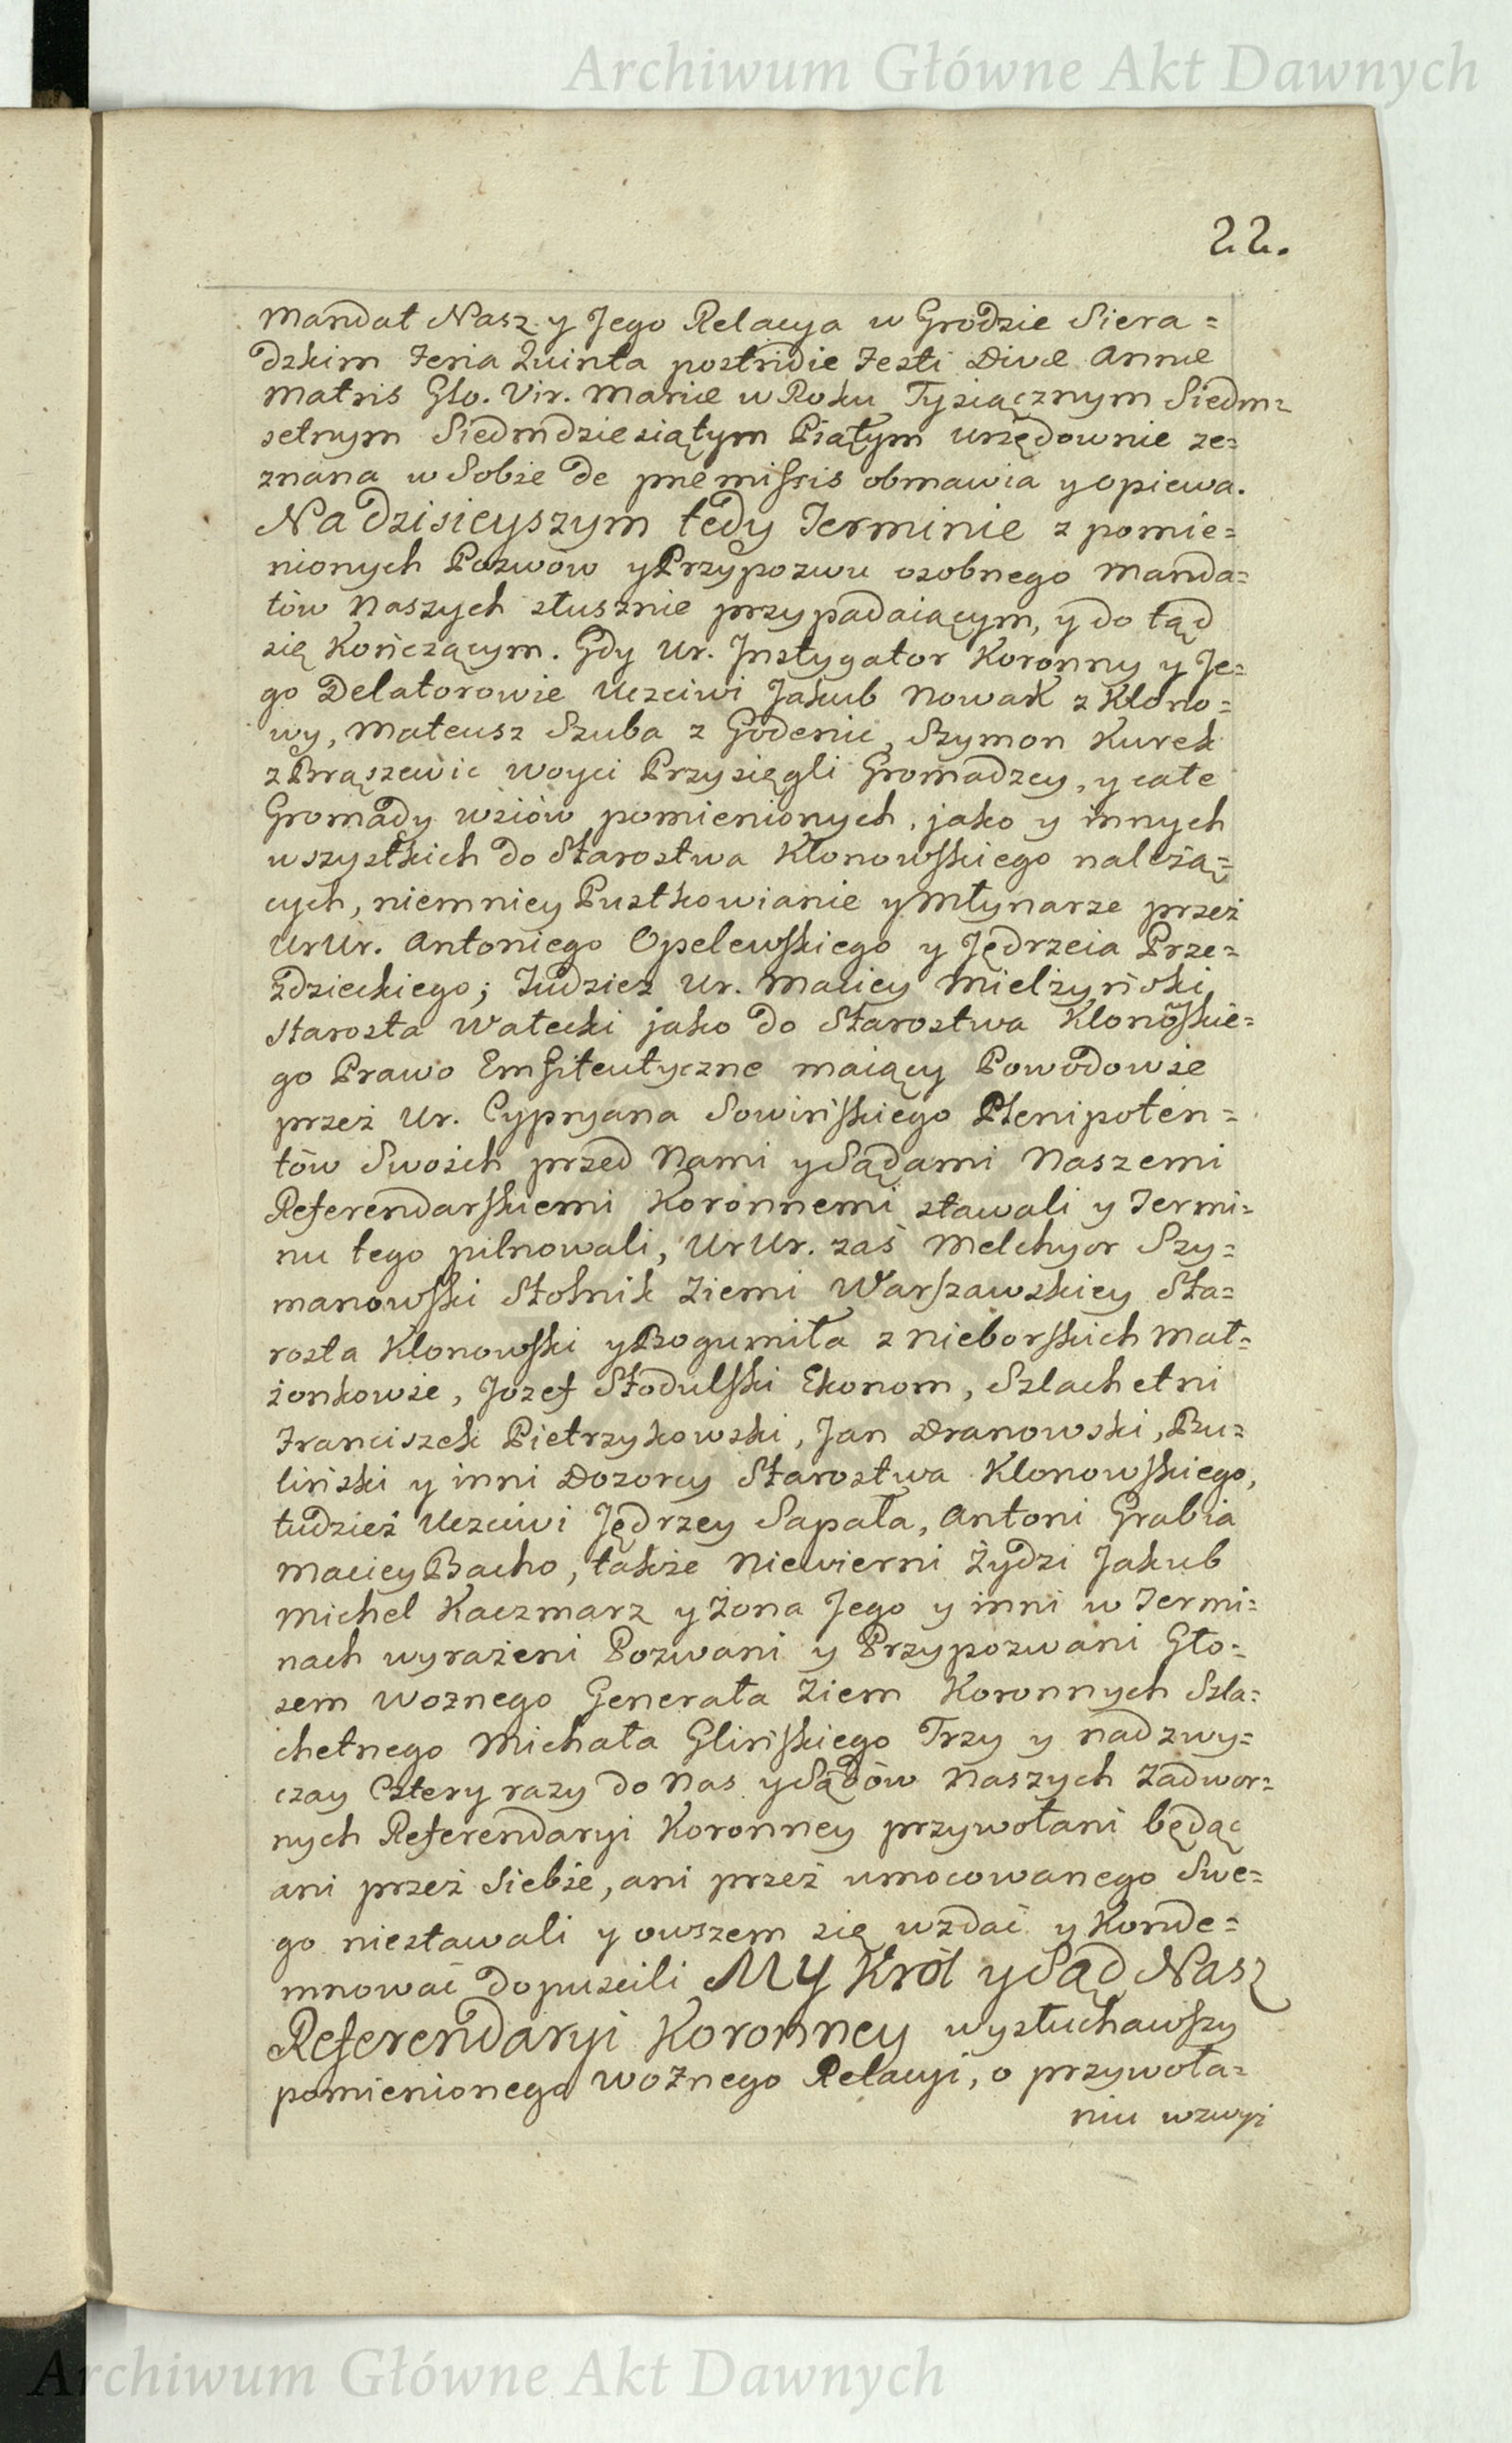 Archiwum Główne Akt Dawnych
22.
Mandat Nasz y Jego Relacya w Grodzie Siera=
dzkim Feria Quinta postridie Festi Divæ Annæ
Matris Glo. Vir. Mariæ w Roku Tysiącznym Siedm=
setnym Siedmdziesiątym Piątym urzędownie ze=
znana w Sobie de præmissis obmawia y opiewa.
Na dzisieyszym tedy Terminie z pomie=
nionych Pozwów y Przypozwu osobnego Manda=
tów Naszych słusznie przypadaiącym, y do tąd
się Kończącym. Gdy Ur. Instygator Koronny y Je=
go Delatorowie Uczciwi Jakub Nowak z Klono=
wy, Mateusz Szuba z Godenic, Szymon Kurek
z Brąszewic Woyci Przysięgli Gromadzcy, y całe
Gromady wsiów pomienionych, jako y innych
wszystkich do Starostwa Klonowskiego należą=
cych, niemniey Pustkowianie y Młynarze przez
UrUr. Antoniego Opelewskiego y Jędrzeia Prze=
zdzieckiego; Tudziesz Ur. Maciey Mielżyński
Starosta Wałecki jako do Starostwa Klonoskie=
go Prawo Emfiteutyczne maiący Powodowie
przez Ur. Cypryana Sowińskiego Plenipoten=
tów Swoich przed Nami y Sądami Naszemi
Referendarskiemi Koronnemi stawali y Termi=
nu tego pilnowali, UrUr. zaś Melchyor Szy=
manowski Stolnik Ziemi Warszawskiey Sta=
rosta Klonowski y Bogumiła z Nieborskich Mał=
żonkowie, Jozef Stodulski Ekonom, Szlachetni
Franciszek Pietrzykowski, Jan Dranowski, Bu=
liński y inni Dozorcy Starostwa Klonowskiego,
tudzież Uczciwi Jędrzey Sapała, Antoni Grabia
Maciey Bacho, także Niewierni Żydzi Jakub
Michel Kaczmarz y Żona Jego y inni w Termi=
nach wyrażeni Pozwani y Przypozwani Gło=
sem Woznego Generała Ziem Koronnych Szla=
chetnego Michała Glińskiego Trzy y nadzwy=
czay Cztery razy do Nas y Sądów Naszych Zadwor=
nych Referendaryi Koronney przywołani będąc
ani przez Siebie, ani przez umocowanego Swe=
go niestawali y owszem się wzdać y Konde=
mnować dopuscili My Król y Sąd Nasz
Referendaryi Koronney wysłuchawszy
pomienionego Woznego Relacyi, o przywoła=
niu wzwyż
Archiwum Główne Akt Dawnych